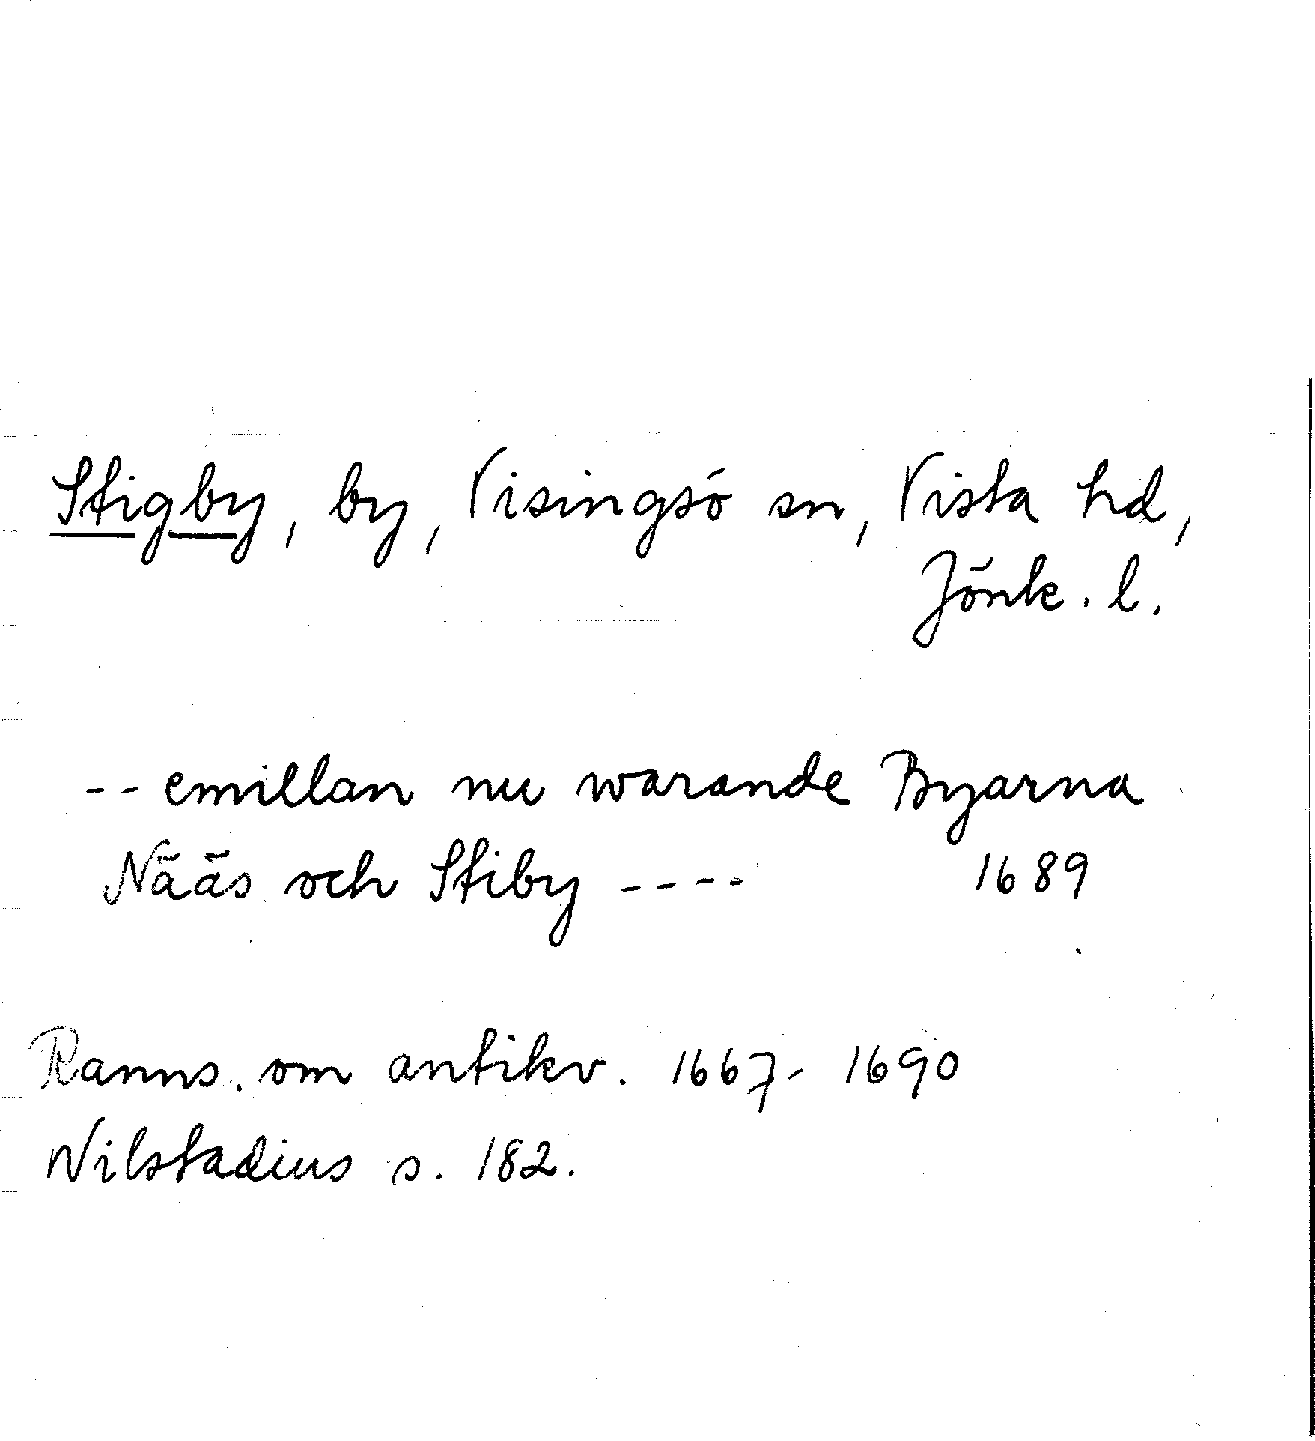 Stigby, by, Visingsö sn, Vista hd,
Jönk. l.
-- emillan nu warande Byarna
Nääs och Stiby ---- 1689
Ranns. om antikv. 1667- 1690
Nilstadius s. 182.